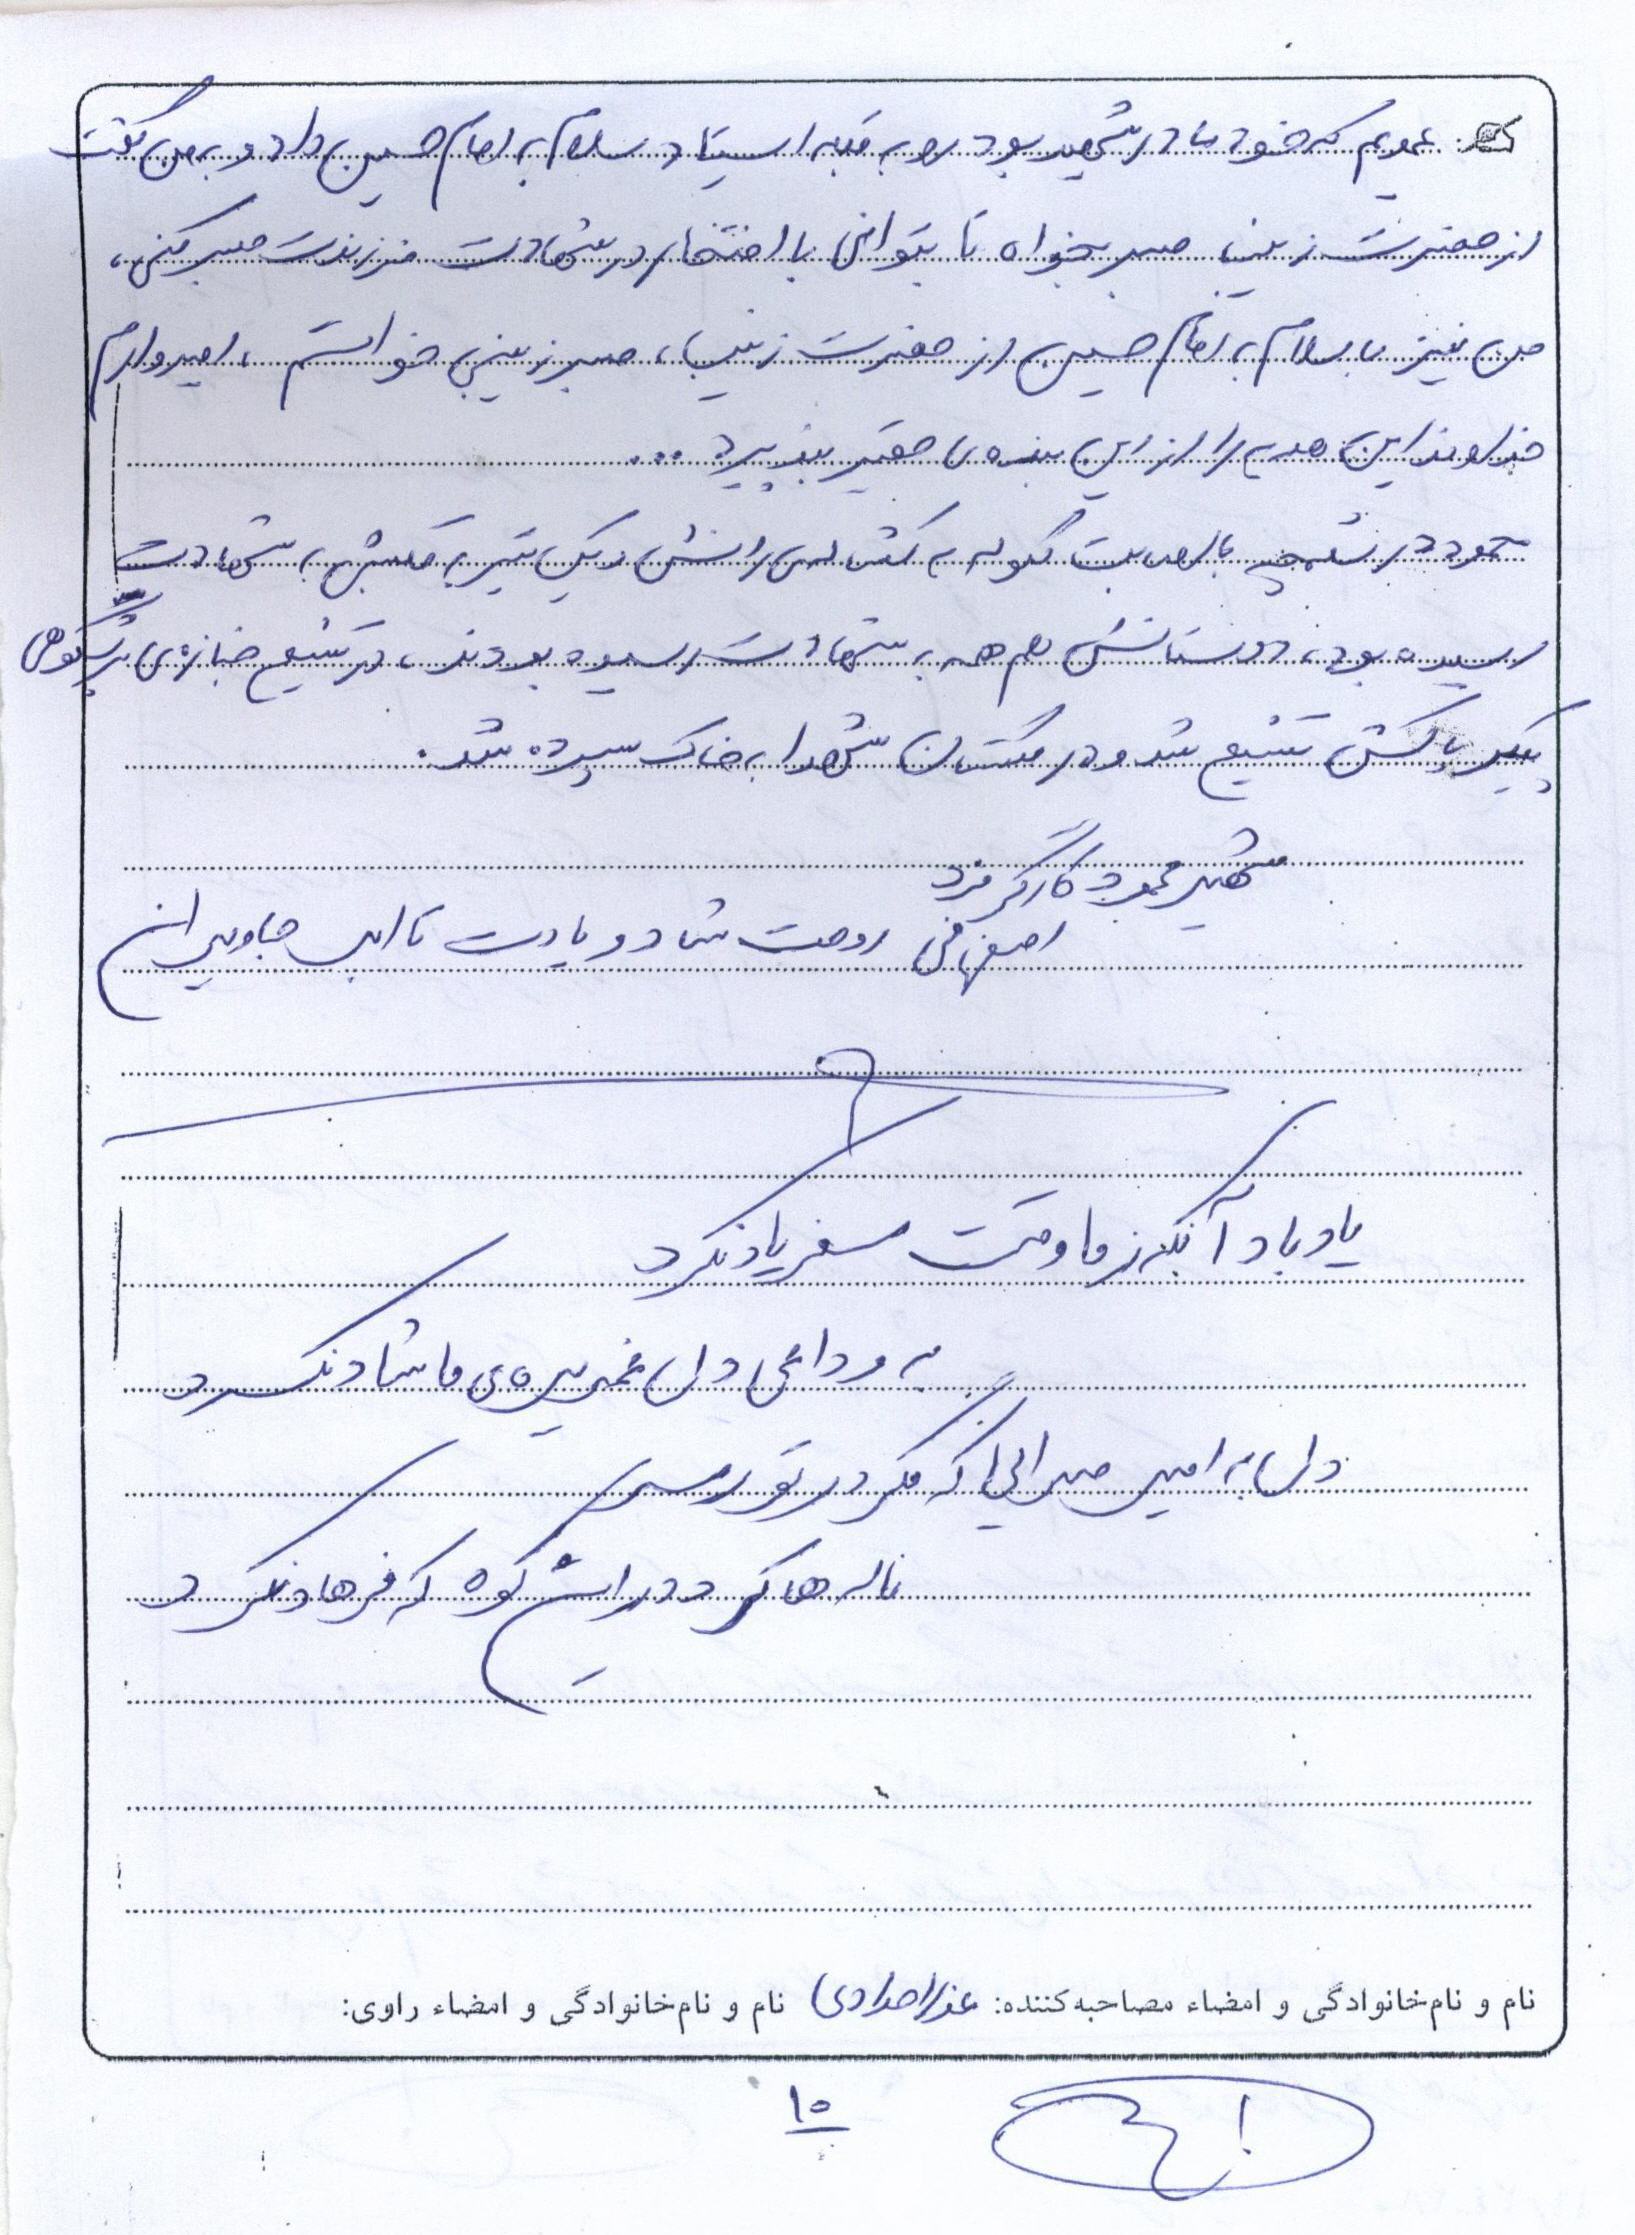 عمویم که خود مادر شهید بود رو به قبله ایستاد و سلام به امام حسین داد و به من گفت
از حضرت زینب صبر بخواه تا بتوانی با افتخار در شهادت فرزندت صبر کنی،
من نیز با سلام به امام حسین از حضرت زینب، صبر زینبی خواستم، امیدوارم
خداوند این هدیه را از این بنده‌ی حقیر بپذیرد ...
محمود در شلمچه با اصابت گلوله به کشاله‌ی رانش و یک تیر به قلبش به شهادت
رسیده بود، دوستانش هم همه به شهادت رسیده بودند، در تشیع جنازه‌ی پرشکوهی
پیکر پاکش تشیع شد و در گلستان شهدا به خاک سپرده شد.
شهید محمود کارگر فرد
اصفهانی روحت شاد و یادت تا ابد جاویدان
یاد باد آنکه ز ما وقت سفر یاد نکرد
به وداعی دل غمدیده‌ی ما شاد نکرد
دل به امید صدایی که مگر در تو رسد
ناله‌ها کرد در این کوه که فرهاد نکرد
نام و نام خانوادگی و امضاء مصاحبه کننده: عذرا مرادی نام و نام خانوادگی و امضاء راوی:
۱۵